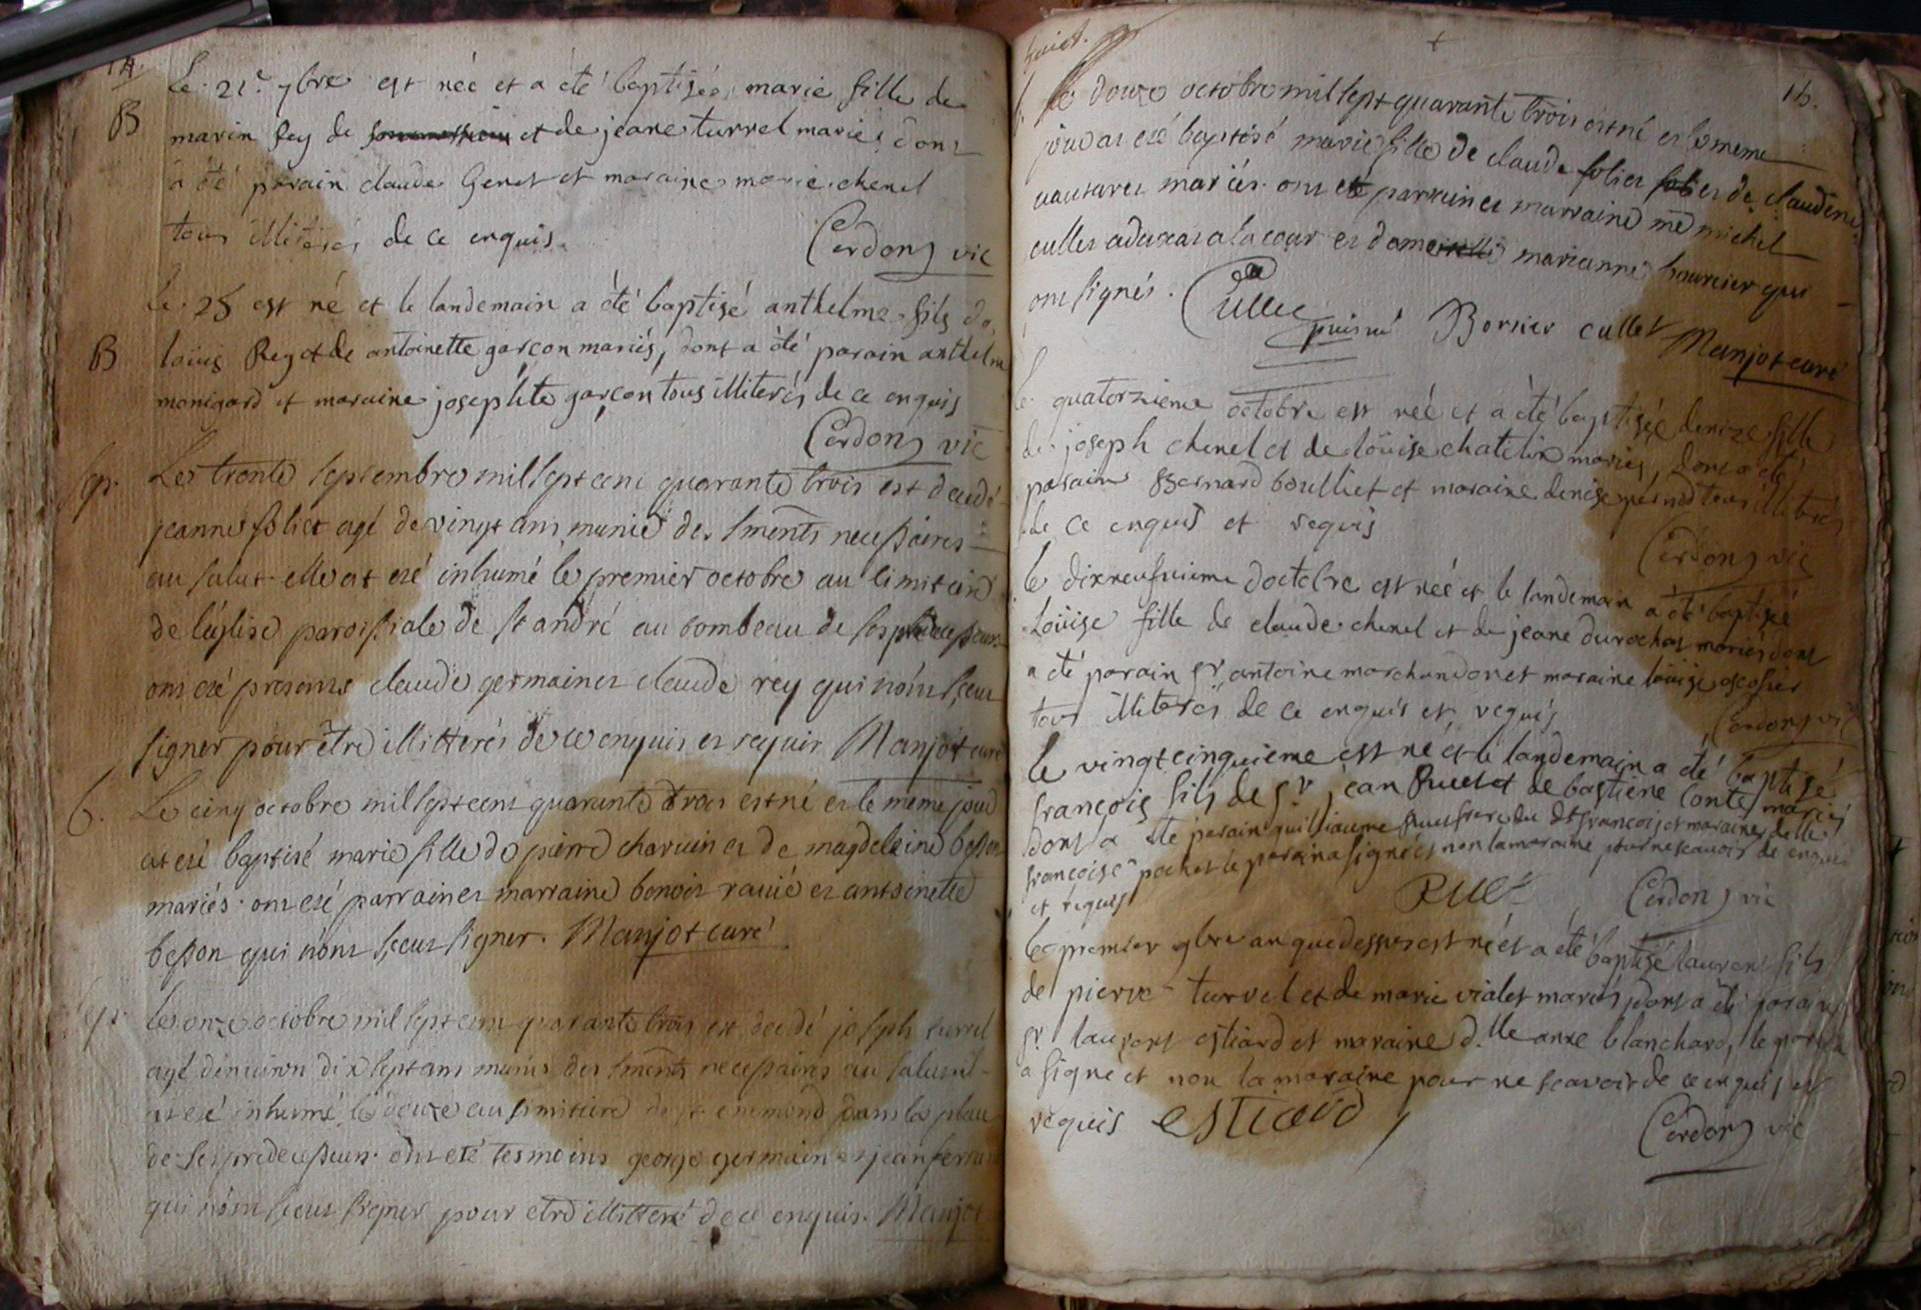 14.
Le 21e 7bre est née et a été baptisée marie fille de
B
marin Rey de et de jeane turrel mariés dont
a été parain claude Genet et maraine marie chenel
tous illiterés de ce enquis.
Cerdon vic
le 25 est né et le landemain a été baptisé anthelme fils de
B
loüis Rey et de antoinette garçon mariés, dont a été parain anthelme
monigard et maraine josephte garçon tous illiterés de ce enquis
Cerdon vic
sep.
Le trente septembre mil sept cent quarante trois est decedé
jeanne foliet agé de vingt ans munie des sments necessaires
au salut elle at eté inhumé le premier octobre au simitiere
de l'eglise paroissiale de st andré au tombeau de ses predecesseurs
ont eté presents claude germain et claude rey qui n'ont sceu
signer pour être illitterés de ce enquis et requis Manjot curé
b.
Le cinq octobre mil sept cent quarante trois est né et le meme jour
at eté baptisé marie fille de pierre charvin et de magdeleine besson
mariés. ont eté parrain et marraine benoit ravié et antoinette
besson qui n'ont sceu signer. Manjot curé
sep.
Le onze octobre mil sept cent quarante trois est decedé joseph turrel
agé d'environ dix sept ans munis des sments necessaires au salut il
at eté inhumé le douze au simitiere de st enemond dans le place
de ses predecesseurs. ont eté tesmoins george germain et jean
qui n'ont sceu signer pour etre illitteré de ce enquis. Manjot
15.
b.
Le douze octobre mil sept quarante trois est né et le meme
jour at eté baptisé marie fille de claude foliet et de claudine
mariés. ont eté parrain et marraine me michel
cullet advocat a la cour et dame marianne bournier qui
ont signés. Cullet
puisné Bornier cullet Manjot curé
le quatorzieme octobre est née et a été baptisée denize fille
de joseph chenel et de loüise chatelin mariés, dont a été
parain Bernard boulliet et maraine denise tous illiterés
de ce enquis et requis
Cerdon vic
le dixneufvieme d'octobre est née et le landemain a été baptisée
Loüise fille de claude chenel et de jeane durochat mariés dont
a été parain sr. antoine marchandon et maraine loüise
tous illiterés de ce enquis et requis
Cerdon vic
le vingtcinquieme est né et le landemain a été baptisé
françois fils de sr. jean Ruet et de bastiene conte mariés
dont a été parain guilliaume Ruet frere du dt françois et maraine delle
françoise pochet le parain a signé et non la maraine pour ne scavoir de enquis
et requis
Ruet
Cerdon vic
le premier 9bre an que dessus est né et a été baptisé laurent fils
de pierre turrel et de marie vialet mariés dont a été parain
sr. laurent estiard et maraine d.lle anne blanchard, le parain
a signé et non la maraine pour ne scavoir de ce enquis et
requis estiard
Cerdon vic